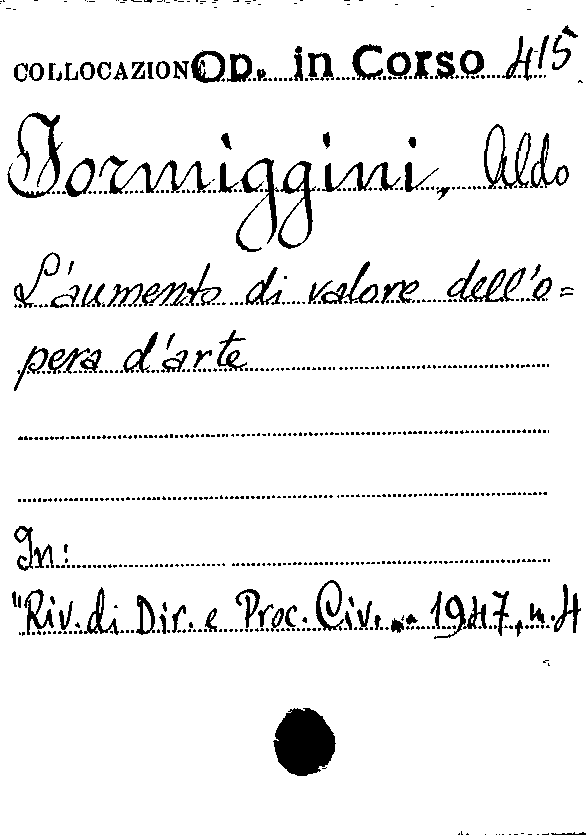 COLLOCAZIONE Op. in Corso 415
Formiggini, Aldo
L'aumento di valore dell'o=
pera d'arte
In:
"Riv. di Dir. e Proc. Civ. " 1947, n. 4